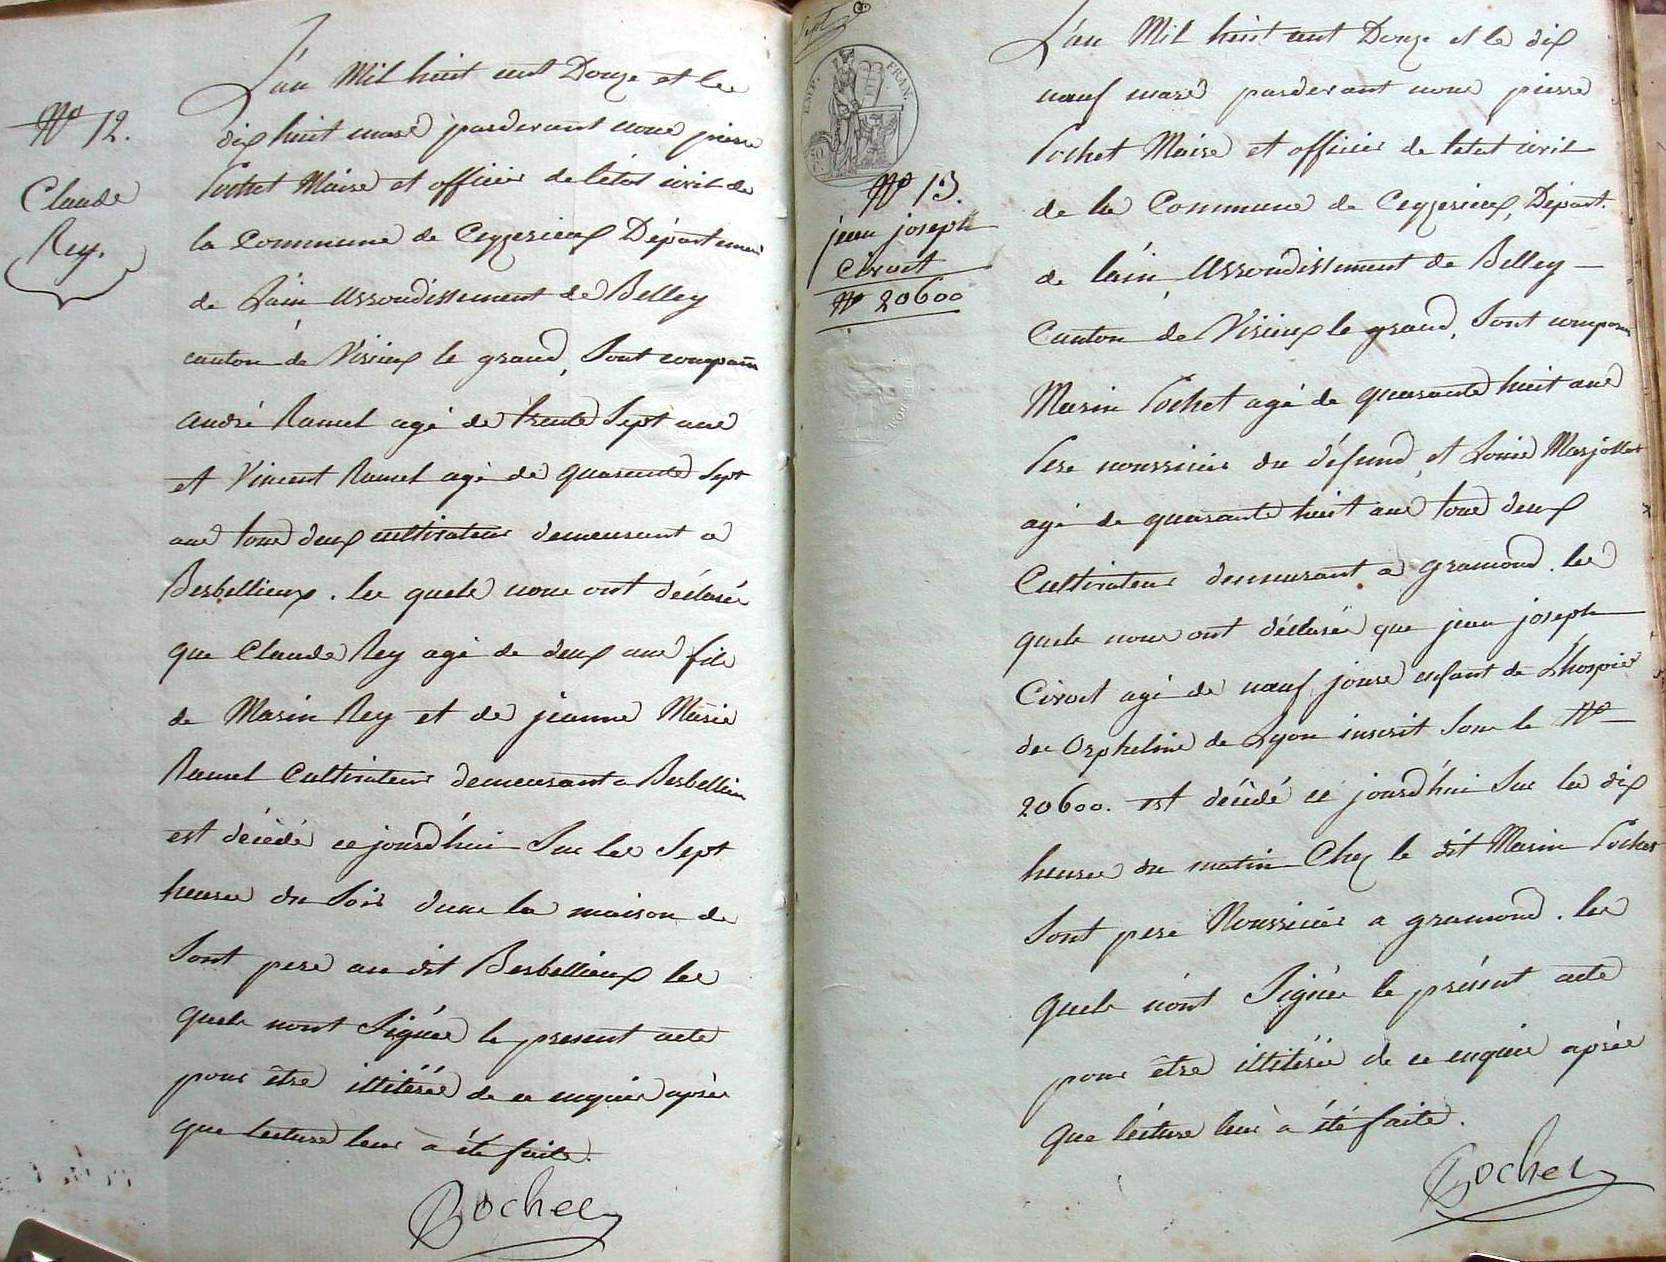 N° 12.
Claude
Rey.
L'an Mil huit cent Douze et les
dix huit mars pardevant nous pierre
Pochet Maire et officier de l'état civil de
la Commune de Ceyzerieux Département
de L'ain Arrondissement de Belley
canton de Virieux le grand, Sont comparu
André Ramel agé de trente Sept ans
et Vincent Ramel agé de quarente Sept
ans tous deux cultivateurs demeurant a
Berbellieux. les quels nous ont déclarés
que Claude Rey agé de deux ans fils
de Marin Rey et de jeanne Marie
Ramel Cultivateurs demeurant a Berbellieux
est décédé ce jourd'hui Sur les Sept
heures du Soir dans la maison de
Sont pere au dit Berbellieux les
quels n'ont Signés le present acte
pour être illitérés de ce enquis après
que lecture leur à été faite.
Pochet
Sept
EMP. FRAN.
N° 13.
jean joseph
Ciroct
N° 20600
L'an Mil huit cent Douze et le dix
neuf mars pardevant nous pierre
Pochet Maire et officier de letat civil
de la Commune de Ceyzerieux, Départ.
de l'ain, Arrondissement de Belley
Canton de Virieux le grand, Sont comparus
Marin Pochet agé de quarante huit ans
Pere nourricier du défund, et Louis Marjollet
agé de quarante huit ans tous deux
Cultivateurs demeurant a gramond. les
quels nous ont déclarés que jean joseph
Ciroct agé de neuf jours enfant de L'hospice
des Orphelins de Lyon inscrit Sous le N°
20600. est décédé ce jourd'hui Sur les dix
heures du matin Chez le dit Marin Pochet
Sont pere Nourricier a gramond. les
quels n'ont Signés le présent acte
pour être illitérés de ce enquis après
que lécture leur à été faite.
Pochet